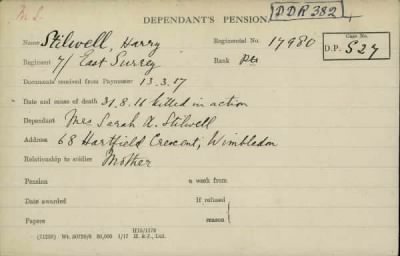 M.S.
DEPENDANT'S PENSION.
DDR 382
Name Stilwell, Harry Regimental No. 17980 Case No.
Regiment 7/ East Surrey Rank Pte D.P. 527
Documents received from Paymaster 13.3.17
Date and cause of death 31.8.16 killed in action
Dependant Mrs Sarah A. Stilwell
Address 68 Hartfield Crescent, Wimbledon
Relationship to soldier Mother
Pension a week from
Date awarded If refused
Papers reason
H16/1179
(11236) Wt. 50720/6 30,000 1/17 H. &J., Ltd.